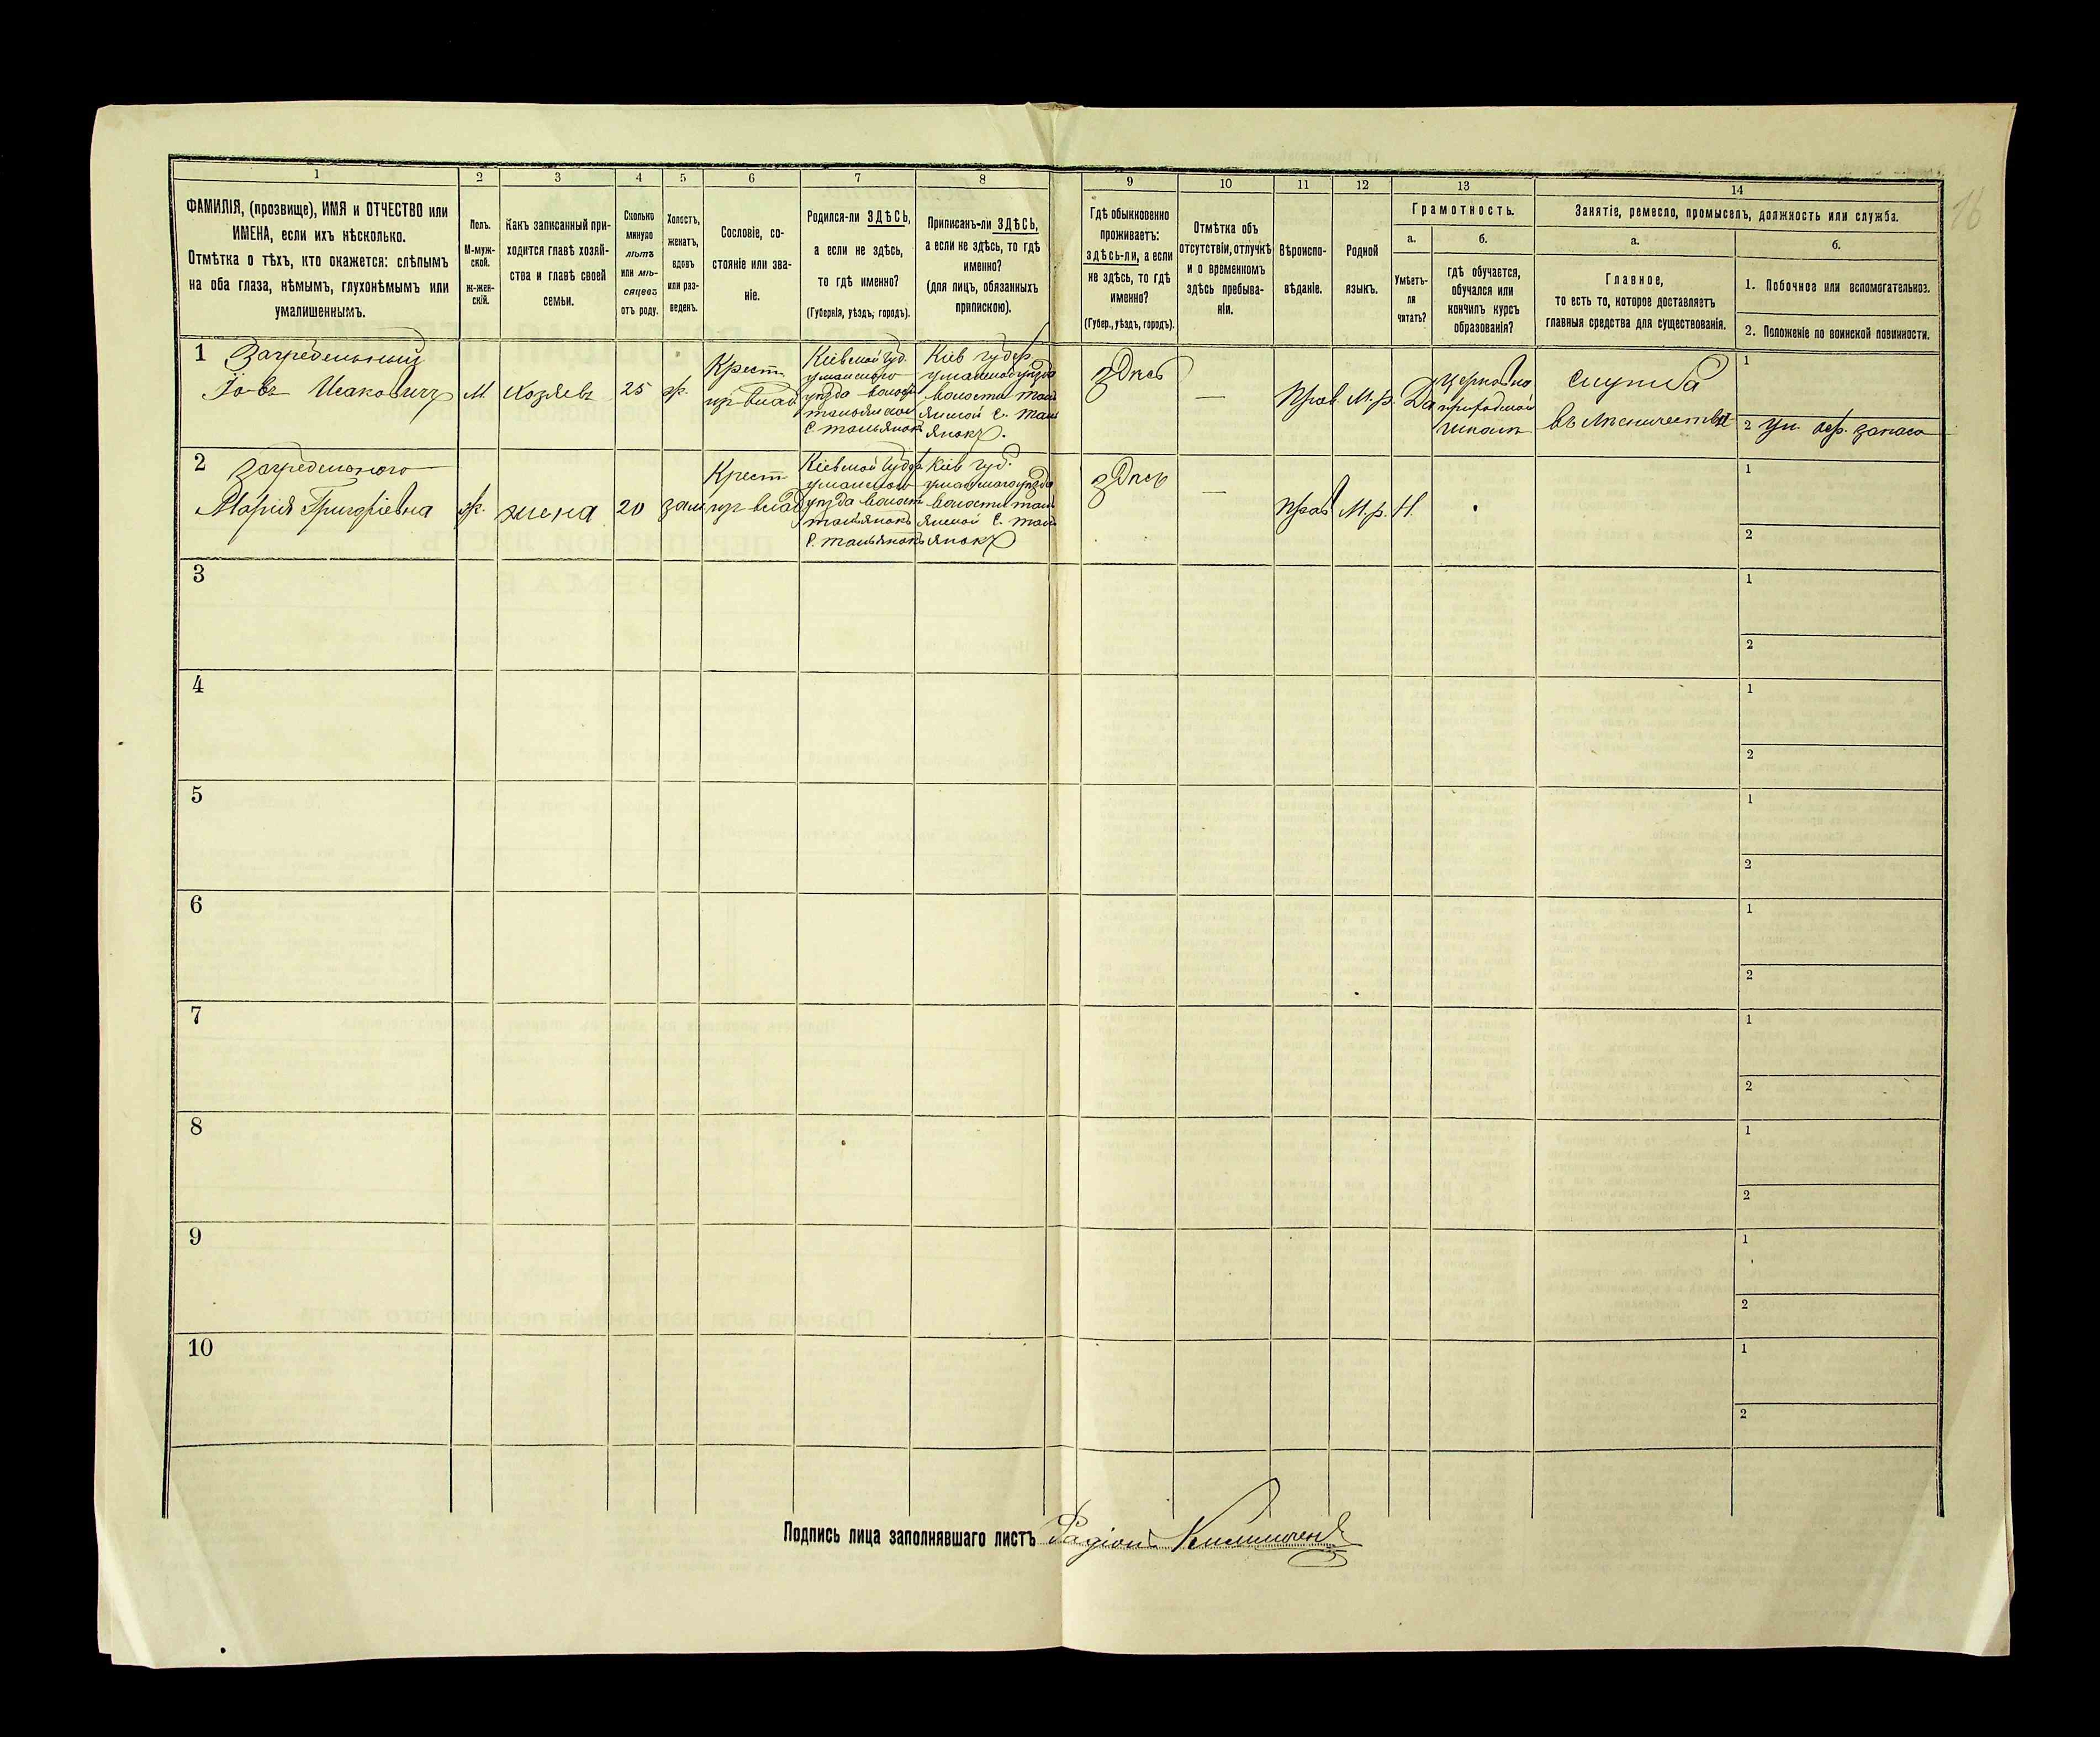 1 2 3 4 5 6 7 8 9 10 11 12 13 14
ФАМИЛІЯ, (прозвище), ИМЯ и ОТЧЕСТВО или
ИМЕНА, если ихъ нѣсколько.
Отмѣтка о тѣхъ, кто окажется: слѣпымъ
на оба глаза, нѣмымъ, глухонѣмымъ или
умалишеннымъ.
Полъ.
М-муж-
ской.
ж-жен-
скій.
Какъ записанный при-
ходится главѣ хозяй-
ства и главѣ своей
семьи.
Сколько
минуло
лѣтъ
или мѣ-
сяцевъ
отъ роду.
Холостъ,
женатъ,
вдовъ
или раз-
веденъ.
Сословіе, со-
стояніе или зва-
ніе.
Родился-ли ЗДѢСЬ,
а если не здѣсь,
то гдѣ именно?
(Губернія, уѣздъ, городъ).
Приписанъ-ли ЗДѢСЬ,
а если не здѣсь, то гдѣ
именно?
(для лицъ, обязанныхъ
припискою).
Гдѣ обыкновенно
проживаетъ:
здѣсь-ли, а если
не здѣсь, то гдѣ
именно?
(Губер., уѣздъ, городъ).
Отмѣтка объ
отсутствіи, отлучкѣ
и о временномъ
здѣсь пребыва-
ніи.
Вѣроиспо-
вѣданіе.
Родной
языкъ.
Грамотность.
а.
Умѣетъ-
ли
читать?
б.
гдѣ обучается,
обучался или
кончилъ курсъ
образованія?
Занятіе, ремесло, промыселъ, должность или служба.
а.
Главное,
то есть то, которое доставляетъ
главныя средства для существованія.
б.
1. Побочное или вспомогательноз.
2. Положеніе по воинской повинности.
16
1
Іовъ Исаковичъ
М
Хозяевъ
25
ж.
Крест
Кіевской губ.
уманского
уѣзда волост
с. тальянокъ
Кіев губер
волости таль
янской с. таль
янокъ.
здѣсь
—
Прав
М.р.
Да
церковно
приходской
школѣ
служба
въ лѣсничествѣ
1
2 запаса
2
Марія Григоріевна
ж.
жена
20
зам
Крест
уманского
уѣзда волост
с. тальянокъ
Кіев губ.
волости таль
янской с. таль
янокъ
здѣсь
—
Прав
М.р.
Н.
1
2
3
1
2
4
1
2
5
1
2
6
1
2
7
1
2
8
1
2
9
1
2
10
1
2
Подпись лица заполнявшаго листъ